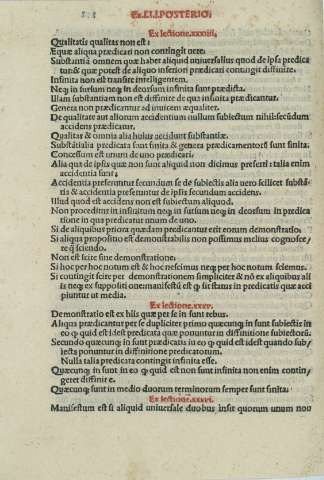 Ex.LI.I.POSTERIO.
Ex lectione.xxxiii.
Qualitatis qualitas non est.
Equæ aliqua prædicari non contingit vere.
Substantiā omnem quæ habet aliquid vniuersalius quod de ipsa predica
tur & quæ potest de aliquo inferiori prædicari contingit diffinire.
Infinita non est transire intelligentem.
Neq in sursum neq in deorsum infinita sunt prædicta.
Illam substantiam non est diffinire de qua infinita prædicantur.
Genera non prædicantur ad inuicem æqualiter.
De qualitate aut aliorum accidentium nullum subiectum nihil:secūdum
accidens prædicatur.
Qualitas & omnia alia huius accidunt substantiæ.
Substātialia predicata sunt finita & genera prædicamentorū sunt finita.
Concessum est vnum de vno predicari.
Alia que de ipsis quæ non sunt aliquid non dicimus preter: talia enim
accidentia sunt.
Accidentia presententur secundum se de subiectis alia vero scilicet substā
tia & accidentia presententur de ipsis secundum accidens.
Illud quod est accidens non est subiectum aliquod.
Non proceditur in infinitum neq in sursum neq in deorsum in predica
tione in qua predicatur vnum de vno.
Si de aliquibus priora quædam predicantur erit eorum demonstratio.
Si aliqua propositio est demonstrabilis non possumus melius cognosce
re q̄ sciendo.
Non est scire sine demonstratione.
Si hoc per hoc notum est & hoc nescimus neq per hoc notum sciemus.
Si contingit scire per demonstrationem simpliciter & nō ex aliquibus ali
is neq ex suppositione:manifestū est q̄ sit status in predicatis quæ acci
piuntur vt media.
Ex lectione.xxxv.
Demonstratio est ex hiis quæ per se in sunt rebus.
Aliqua prædicantur per se dupliciter primo quæcunq in sunt subiectis in
eo q̄ quid est:idest predicata quæ ponuntur in diffinitione subiectorū.
Secundo quæcunq in sunt prædicatis in eo q̄ quid est idest quando sub/
iecta ponuntur in diffinitione predicatorum.
Nulla talia predicata contingit infinita esse.
Quæcunq in sunt in eo q̄ quid est non sunt infinita non enim contin/
geret diffinire.
Quæcunq sunt in medio duorum terminorum semper sunt finita.
Ex lectione.xxxvi.
Manifestum est si aliquid vniuersale duobus insit quorum vnum non